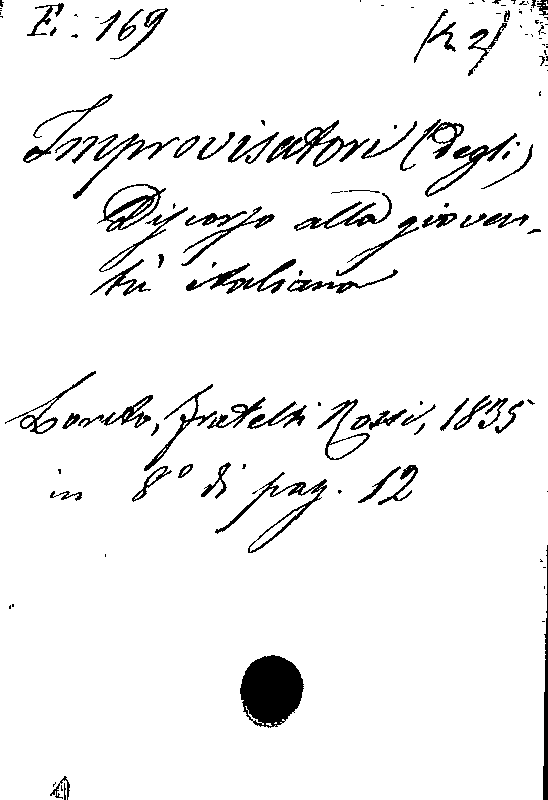 E. 169 (K 2)
Improvisatori (degli)
Discorso alla gioven-
tù italiana
Loreto, Fratelli Rossi, 1835
in 8° di pag. 12